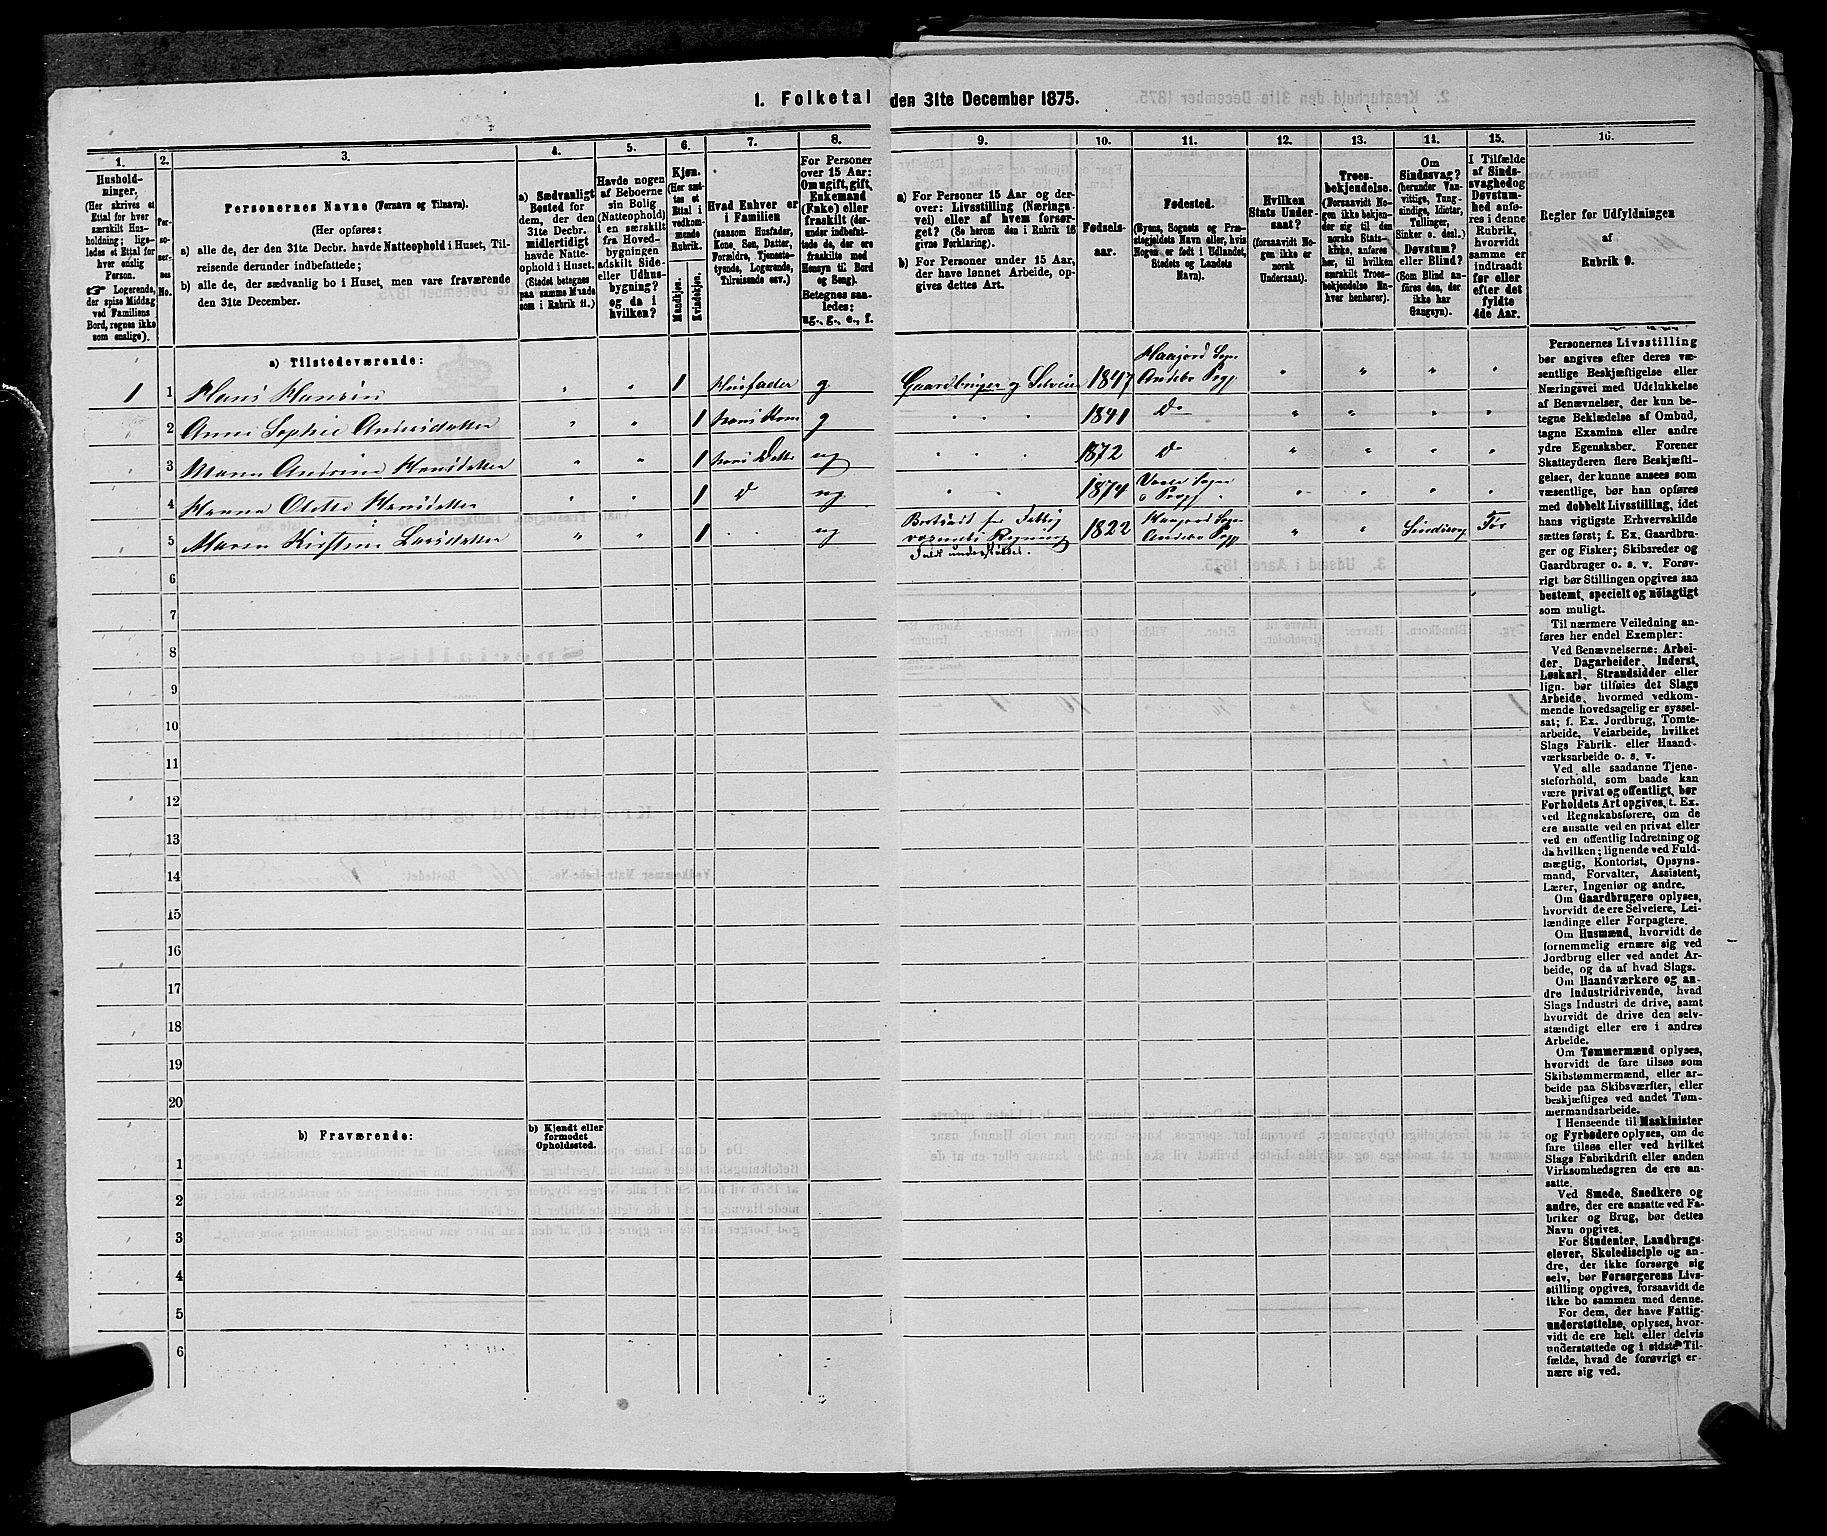 1. Folketal den 31te December 1875.
1.
Hushold-
ninger,
(Her skrives et
Ettal for hver
særskilt Hus-
holdning; lige-
ledes et Ettal for
hver enslig
Person.
☞ Logerende,
der spise Middag
ved Familiens
Bord, regnes ikke
som enslige).
2.
Per-
so-
ner-
nes
No.
3.
Personernes Navne (Fornavn og Tilnavn).
(Her opføres:
a) alle de, der den 31te Decbr. havde Natteophold i Huset, Til-
reisende derunder indbefattede;
b) alle de, der sædvanlig bo i Huset, men vare fraværende
den 31te December.
4.
a) Sædvanligt
Bosted for
dem, der den
31te Decbr.
midlertidigt
havde Natte-
ophold i Huset.
(Stedet betegnes
paa samme Maade
som i Rubrik 11.)
5.
Havde nogen
af Beboerne
sin Bolig
(Natteophold)
i en særskilt
fra Hoved-
bygningen
adskilt Side-
eller Udhus-
bygning?
og da i
hvilken?
6.
Kjøn.
(Her sæt-
tes et
Ettal i
vedkom-
mende
Rubrik.
Mandkjøn.
Kvindekjøn.
7.
Hvad Enhver er
i Familien
(saasom Husfader,
Kone, Søn, Datter,
Forældre, Tjeneste-
tyende, Logerende,
Tilreisende osv.)
8.
For Personer
over 15 Aar:
Om ugift, gift,
Enkemand
(Enke) eller
fraskilt (der-
under indbefat-
tede de, der ere
fraskilte med
Hensyn til Bord
og Seng).
Betegnes saa-
ledes:
ug., g., e., f.
9.
a) For Personer 15 Aar og der-
over: Livsstilling (Nærings-
vei) eller af hvem forsør-
get? (Se herom den i Rubrik 16
givne Forklaring).
b) For Personer under 15 Aar,
der have lønnet Arbeide, op-
gives dettes Art.
10.
Fødsels-
aar.
11.
Fødested.
(Byens, Sognets og Præ-
stegjeldets Navn eller, hvis
Nogen er født i Udlandet,
Stedets og Landets
Navn).
12.
Hvilken
Stats Under-
saat?
(forsaavidt No-
gen ikke er
norsk
Undersaat).
13.
Troes-
bekjendelse.
(Forsaavidt No-
gen ikke bekjen-
der sig til den
norske Stats-
kirke, anføres
her, til hvilken
særskilt Troes-
bekjendelse En-
hver henhører).
14.
Om
Sindssvag?
(herunder Van-
vittige, Tung-
sindige, Idioter,
Tullinger,
Sinker o. desl.)
Døvstum?
eller Blind?
(Som Blind an-
føres den, der
ikke har
Gangsyn).
15.
I Tilfælde
af Sinds-
svaghed og
Døvstum-
hed anfø-
res i denne
Rubrik,
hvorvidt
samme er
indtraadt
før eller
efter det
fyldte
4de Aar.
16.
Regler for Udfyldningen
af
Rubrik 9.
a) Tilstedeværende:
1 1 Hans Hansen " " 1 Husfader g Gaardbruger og Selveier 1847 Haajord Sogn Andebo Prgj. " " " "
2 Anne Sophie Andersdatter " " 1 hans Kone g " " " 1841 Do " " " "
3 Maren Andrine Hansdatter " " 1 hans Datter ug " " " 1872 Do " " " "
4 Hanna Olette Hansdatter " " 1 D ug " " 1874 Vaale Sogn o Prgj. " " " "
5 Maren Kirstine Larsdatter " " 1 " " ug Bortsadt for Fattig
væsenets Regning
Fuldt understøttet. 1822 Haajord Sogn Andebo Prgj. " " Sindssvag Før
6
7
8
9
10
11
12
13
14
15
16
17
18
19
20
b) Fraværende:
b) Kjendt eller
formodet
Opholdssted.
1
2
3
4
5
6
Personernes Livsstilling
bør angives efter deres væ-
sentlige Beskjæftigelse eller
Næringsvei med Udelukkelse
af Benævnelser, der kun be-
tegne Beklædelse af Ombud,
tagne Examina eller andre
ydre Egenskaber. Forener
Skatteyderen flere Beskjæfti-
gelser, der kunne ansees som
væsentlige, bør han opføres
med dobbelt Livsstilling, idet
hans vigtigste Erhvervskilde
sættes først; f. Ex. Gaardbru-
ger og Fisker; Skibsreder og
Gaardbruger o. s. v. Forøv-
rigt bør Stillingen opgives saa
bestemt, specielt og nøiagtigt
som muligt.
Til nærmere Veiledning an-
føres her endel Exempler:
Ved Benævnelserne: Arbei-
der, Dagarbeider, Inderst,
Løskarl, Strandsidder eller
lign. bør tilføies det Slags
Arbeide, hvormed vedkom-
mende hovedsagelig er syssel-
sat; f. Ex. Jordbrug, Tomte-
arbeide, Veiarbeide, hvilket
Slags Fabrik- eller Haand-
værksarbeide o. s. v.
Ved alle saadanne Tjene-
steforhold, som baade kan
være privat og offentligt, bør
Forholdets Art opgives, t. Ex.
ved Regnskabsførere, om de
ere ansatte ved en privat eller
ved en offentlig Indretning og
da hvilken; lignende ved Fuld-
mægtig, Kontorist, Opsyns-
mand, Forvalter, Assistent,
Lærer, Ingeniør og andre.
Om Gaardbrugere oplyses,
hvorvidt de ere Selveiere, Lei-
lændinge eller Forpagtere.
Om Husmænd, hvorvidt de
fornemmelig ernære sig ved
Jordbrug eller ved andet Ar-
beide, og da af hvad Slags.
Om Haandværkere og an-
dre Industridrivende, hvad
Slags Industri de drive, samt
hvorvidt de drive den selv-
stændigt eller ere i andres
Arbeide.
Om Tømmermænd oplyses,
hvorvidt de fare tilsøs som
Skibstømmermænd, eller ar-
beide paa Skibsværfter, eller
beskjæftiges ved andet Tøm-
mermandsarbeide.
I Henseende til Maskinister
og Fyrbødere oplyses, om de
fare tilsøs eller ved hvilket
Slags Fabrikdrift eller anden
Virksomhedsgren de ere an-
satte.
Ved Smede, Snedkere og
andre, der ere ansatte ved Fa-
briker og Brug, bør dettes
Navn opgives.
For Studenter, Landbrugs-
elever, Skoledisciple og an-
dre, der ikke forsørge sig
selv, bør Forsørgerens Livs-
stilling opgives, forsaavidt de
ikke bo sammen med denne.
For dem, der have Fattig-
understøttelse, oplyses, hvor-
vidt de ere helt eller delvis
understøttede og i sidste Til-
fælde, hvad de forøvrigt er-
nære sig ved.